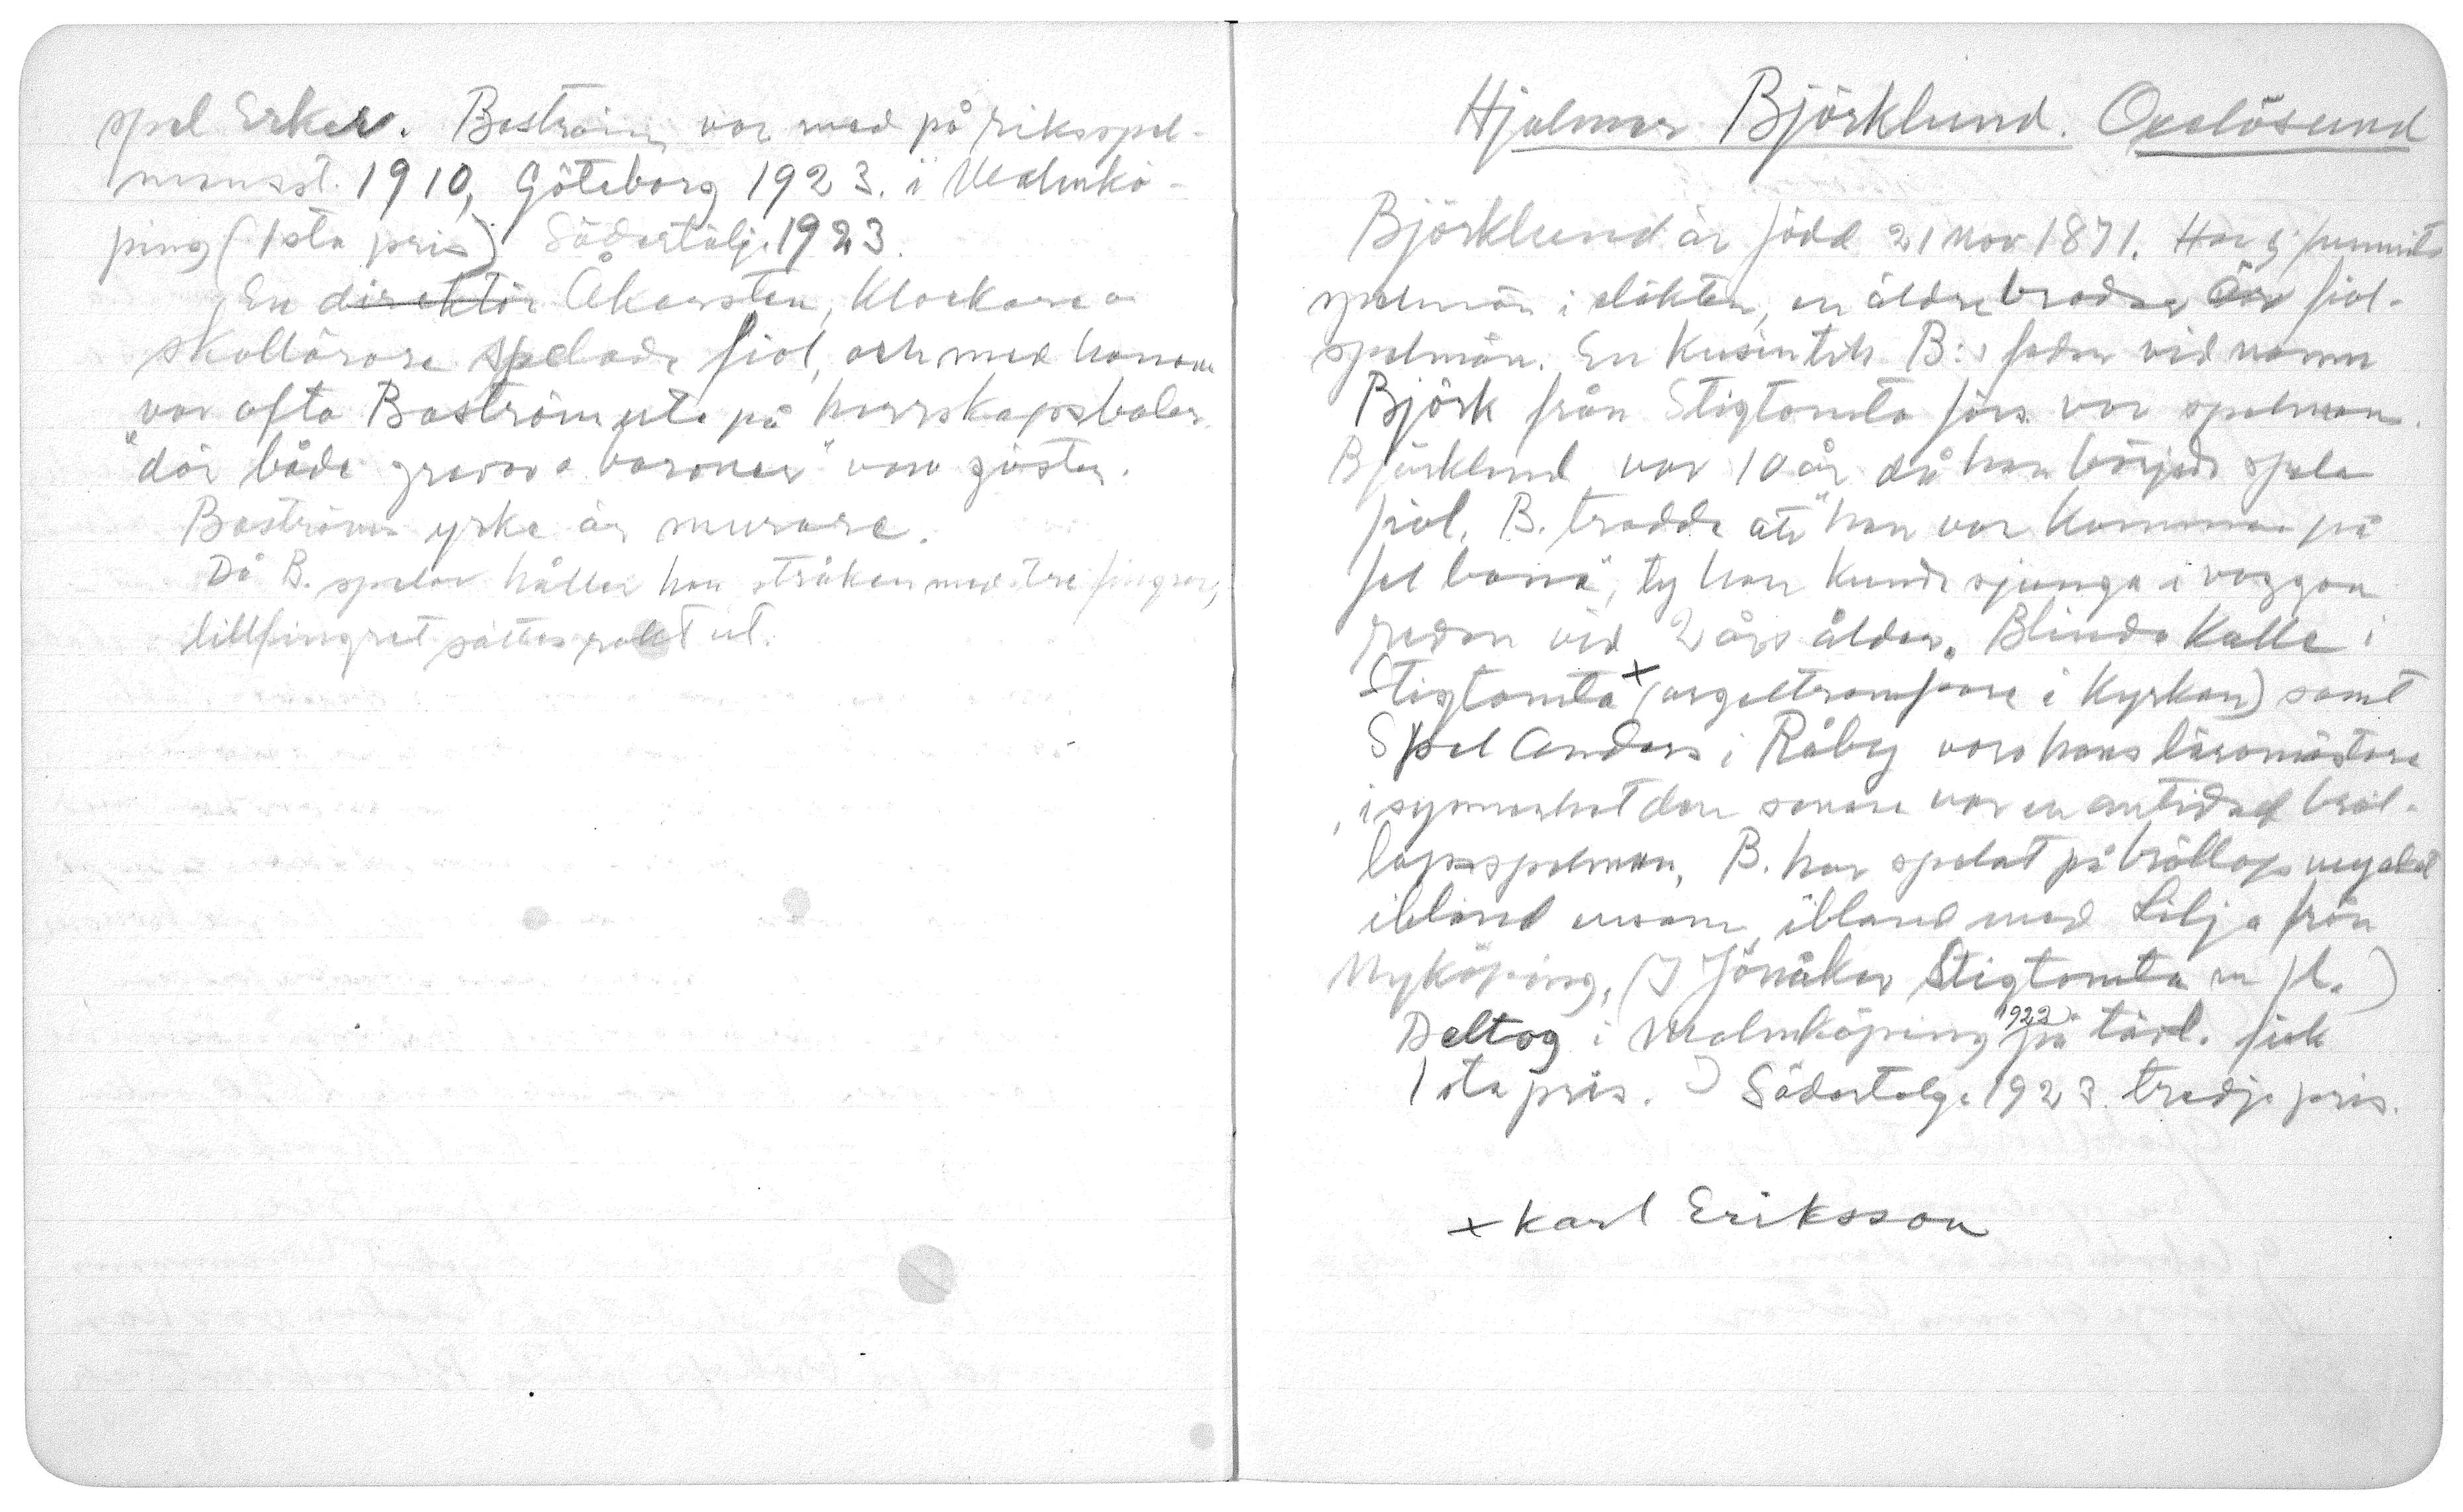 spel Erker. Boström var med på riksspel-
mansst. 1910, Göteborg 1923. i Malmkö-
ping (1sta pris) Södertälje 1923.
En direktör Åkersten, Klockare o
skollärare spelade fiol, och med honom
var ofta Boström ute på herrskapsbaler
"där både grevar o baroner" voro gäster.
Boströms yrke är murare.
Då B. spelar håller han stråken med tre fingrar,
lillfingret sättes rakt ut.
Hjalmar Björklund. Oxelösund
Björklund är född 21 nov 1871. Har ej funnits
spelmän i släkten, en äldre broder är fiol-
spelman. En kusin till B:s fader vid namn
Björk från Stigtomta förs. var spelman.
Björklund var 10 år då han började spela
fiol. B. trodde att "han var kommen på
fel bana", ty han kunde sjunga i vaggan
redan vid 2 års ålder. Blinde Kalle i
Stigtomta x (orgeltrampare i kyrkan) samt
Spel Anders i Råby voro hans läromästare
, i synnerhet den senare var en anlitad bröl-
lopsspelman. B. har spelat på bröllop mycket
ibland ensam, ibland med Lilja från
Nyköping, (I Jönåker Stigtomta m fl.)
Deltog i Malmköping 1922 på tävl. fick
1sta pris. I Södertelge 1923 tredje pris.
x Karl Eriksson